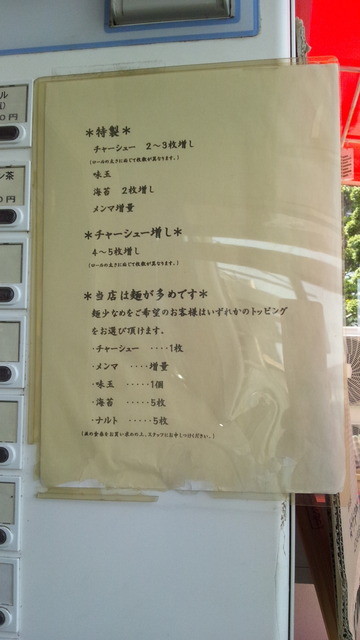 ル
0円
ン茶
0円
＊特製＊
チャーシュー 2〜3枚増し
(ロールの太さに応じて枚数が異なります。)
味玉
海苔 2枚増し
メンマ増量
＊チャーシュー増し＊
4〜5枚増し
(ロールの太さに応じて枚数が異なります。)
＊当店は麺が多めです＊
麺少なめをご希望のお客様はいずれかのトッピング
をお選び頂けます。
・チャーシュー ‥‥1枚
・メンマ ‥‥増量
・味玉 ‥‥‥1個
・海苔 ‥‥‥5枚
・ナルト ‥‥‥5枚
の食券をお買い求めの上、スタッフにお申しつけください。)